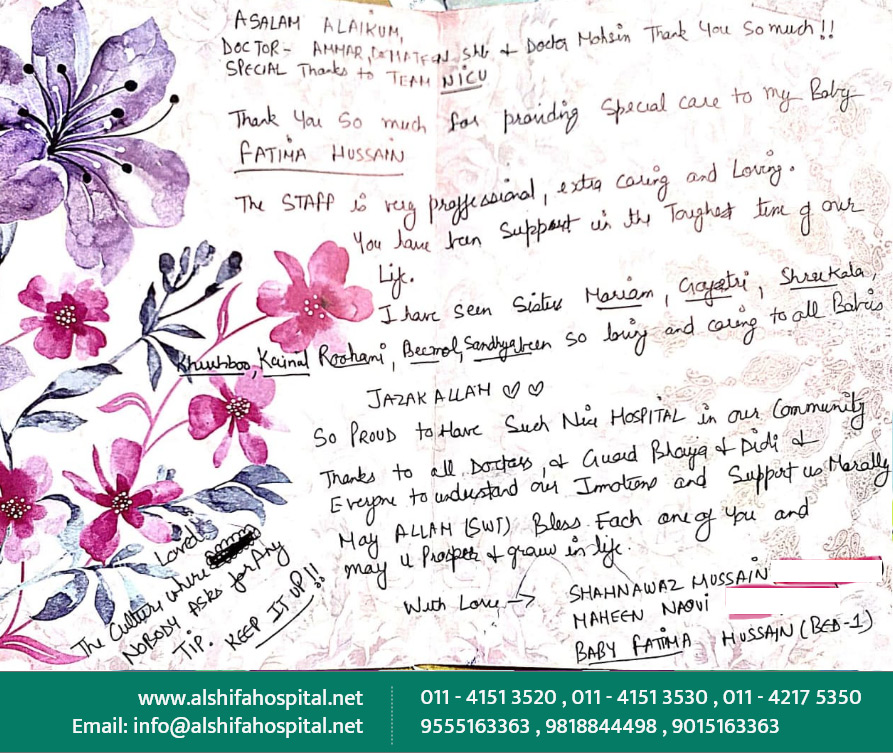 ASALAM ALAIKUM,
DOCTOR - AMMAR, Dr. MATEEN Shb & Doctor Mohsin Thank You So much!!
SPECIAL Thanks to TEAM NICU
Thank You So much for providing Special care to my Baby
FATIMA HUSSAIN
The STAFF is very proffessional, extra caring and Loving.
You have been Support in the Toughest time of our
Life.
I have seen Sister Mariam, Gayatri, Shreekala,
Khushboo, Kainal Roohani, Beemol, Sandhya been so loving and caring to all Babies
JAZAK ALLAH ♡ ♡
So PROUD to Have Such Nice HOSPITAL in our Community
Thanks to all Doctors, & Guard Bhaya & Didi &
Everyone to understand our Imotions and Support us Morally
May ALLAH (SWT) Bless Each one of You and
may u Prosper & grow in life.
With Love → SHAHNAWAZ HUSSAIN
MAHEEN NAQVI
BABY FATIMA HUSSAIN (BED-1)
Loved
The Culture where
NOBODY Asks for Any
Tip. KEEP IT UP!!
www.alshifahospital.net
Email: info@alshifahospital.net
011 - 4151 3520 , 011 - 4151 3530 , 011 - 4217 5350
9555163363 , 9818844498 , 9015163363